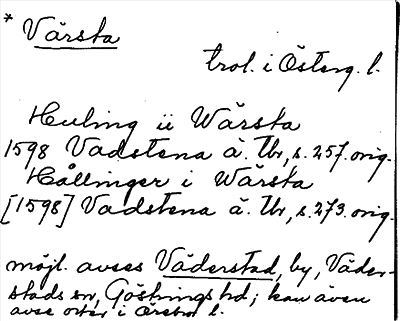 * Värsta
trol. i Österg. l.
Heuling ii Wärsta
1598 Vadstena ä. Tbr, s. 257. orig.
Hållinger i Wärsta
[1598] Vadstena ä. Tbr, s. 273. orig.
möjl. avses Väderstad, by, Väder-
stads sn, Göstrings hd; kan även
avse orter i Örebro l.